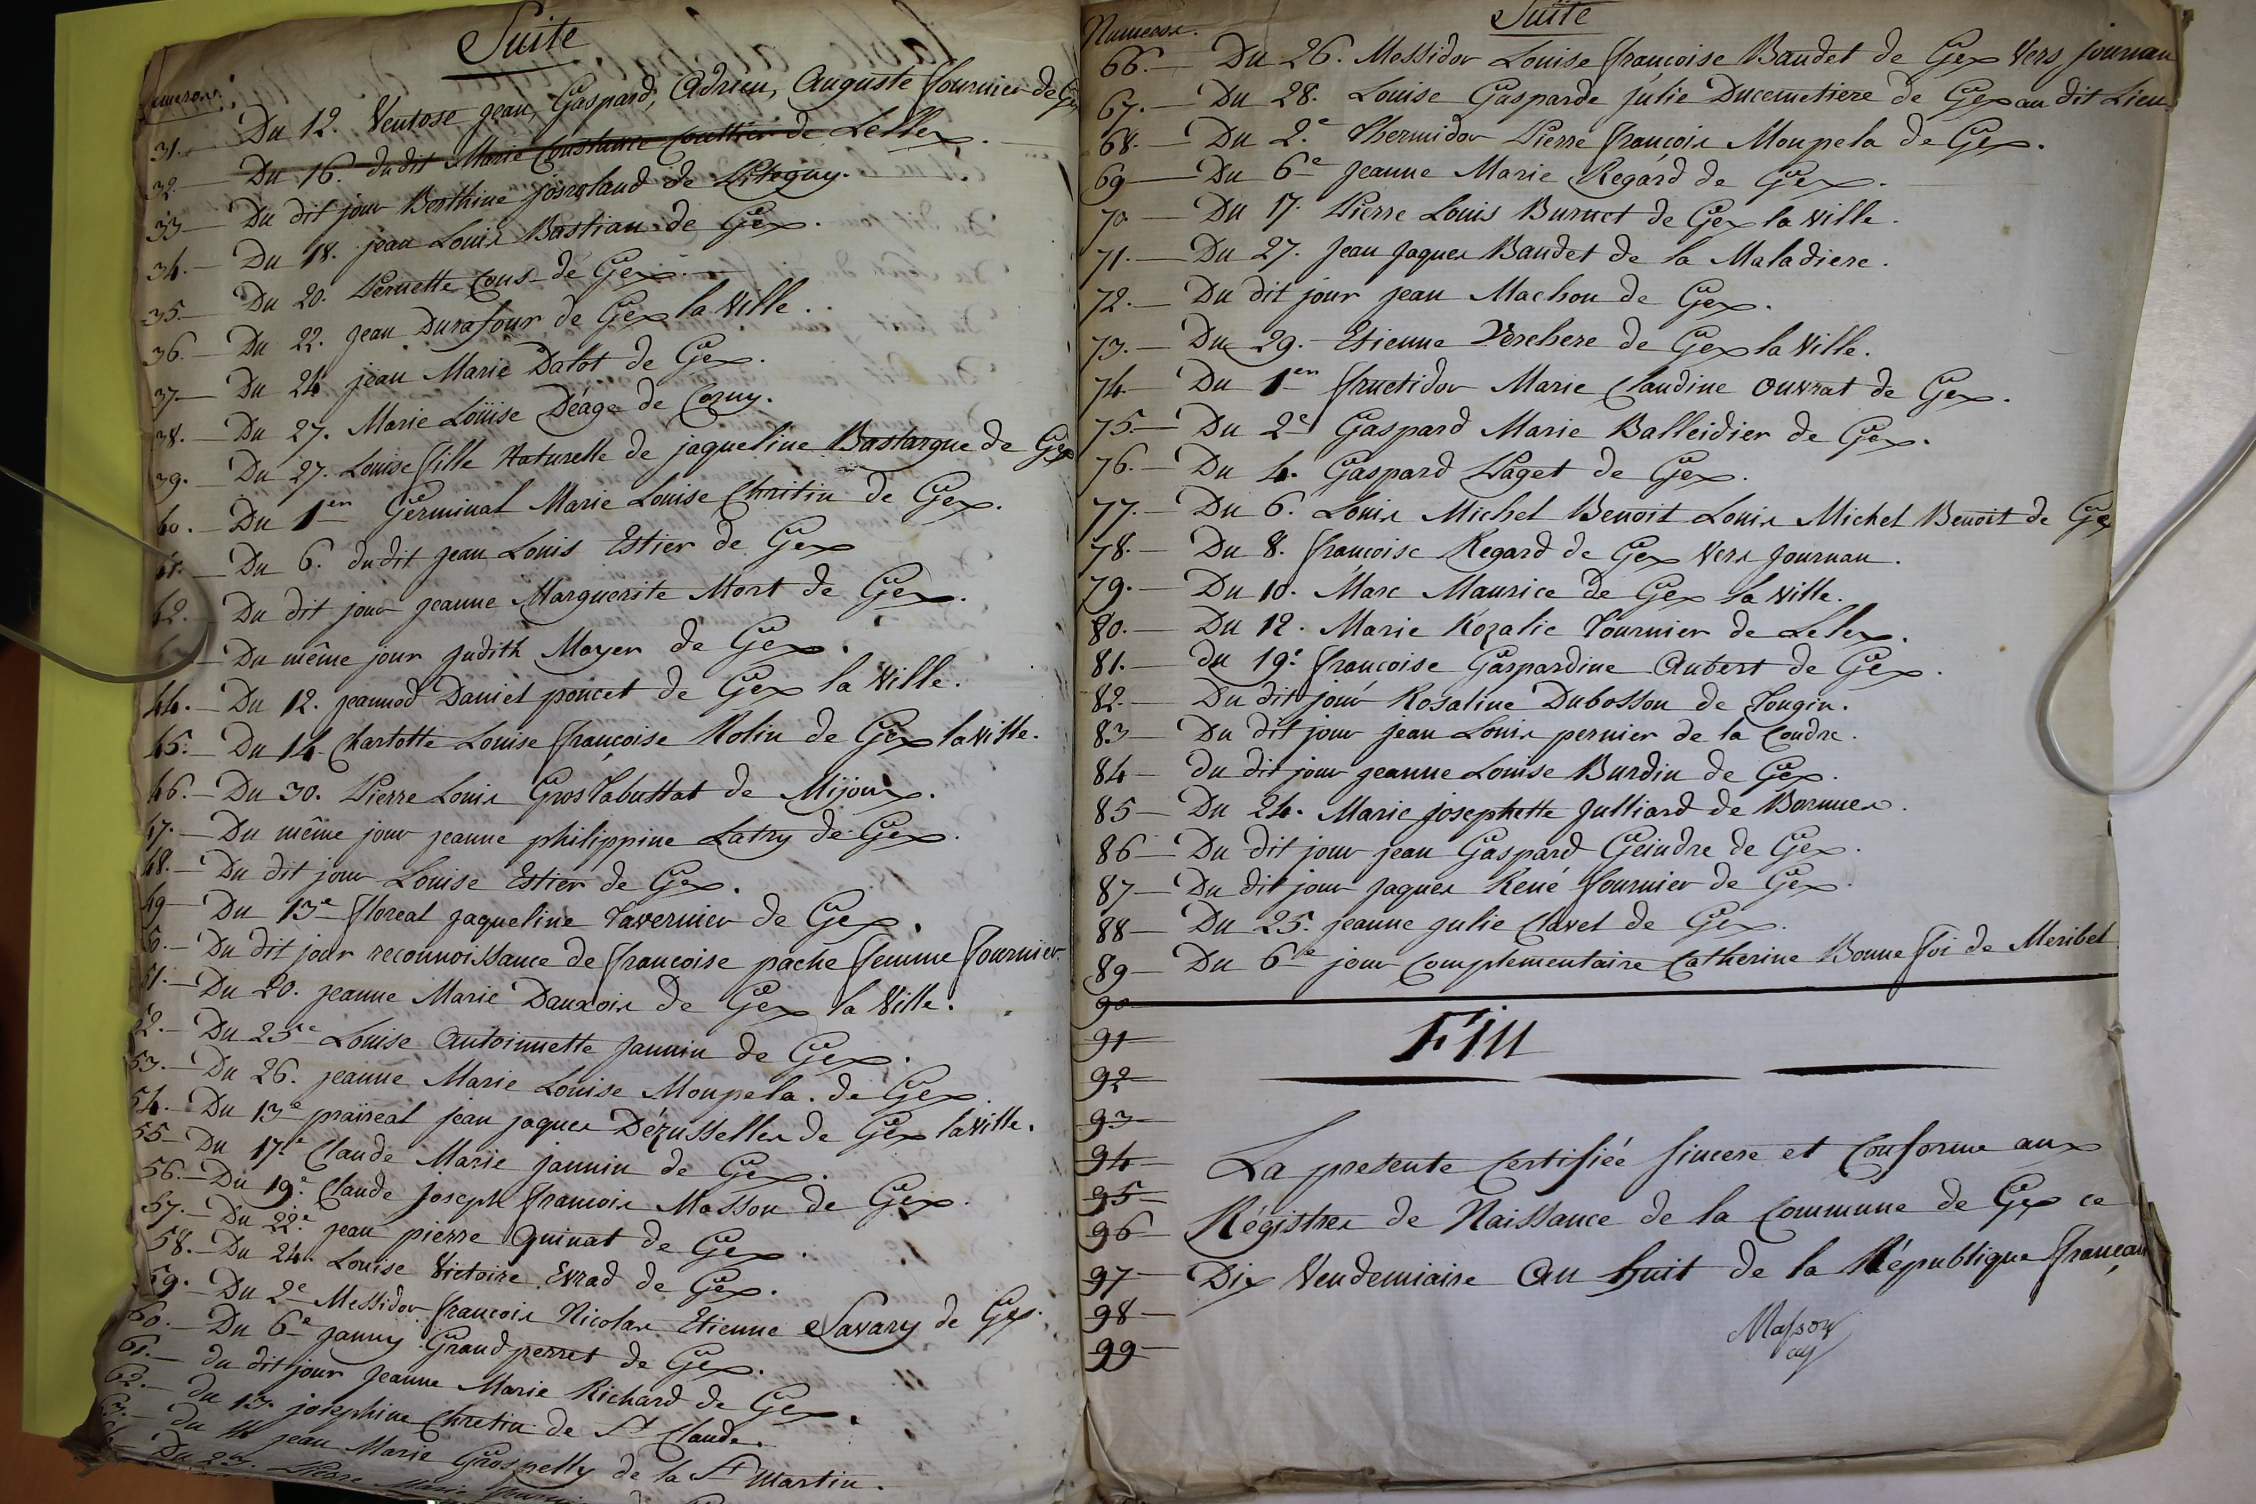 Suite
Numeros.
31.— Du 12. Ventose jean, Gaspard, Adrien, Auguste fournier de Gex
32— Du 16. dudit Marie Constance Coultier de Lellex.
33— Du dit jour Berthine josroland de
34.— Du 18. jean Louis Bastian de Gex.
35.— Du 20. Pernette Cous de Gex.
36.— Du 22. jean Durafour de Gex la Ville.
37.— Du 24 jean Marie Dalot de Gex.
38.— Du 27. Marie Loüise Déage de Corny.
39.— Du 27. Louise fille Naturelle de jaqueline Bastargue de Gex
40.— Du 1er Germinal Marie Louise Chritin de Gex.
41.— Du 6. dudit jean Louis Estier de Gex
42.— Du dit jour jeanne Marguerite Mort de Gex.
— Du même jour judith Moyer de Gex.
44.— Du 12. jeannod Daniel poncet de Gex la Ville.
45.— Du 14 Charlotte Louise françoise Rolin de Gex la Ville.
46.— Du 30. Pierre Louis Gros Tabussat de Mijoux.
47.— Du même jour jeanne philippine Latry de Gex.
48.— Du dit jour Louise Estier de Gex.
49— Du 13e floreal jaqueline Tavernier de Gex.
5.— Du dit jour reconnoissance de françoise pache femme fournier
51.— Du 20. jeanne Marie Dauxois de Gex la Ville.
52.— Du 25e Louise Antoinnette jannin de Gex.
53.— Du 26. jeanne Marie Louise Monpela. de Gex
54.— Du 13e praireal jean jaques Dézusselles de Gex la Ville.
55— Du 17e Claude Marie jannin de Gex.
56.— Du 19e Claude Joseph françois Masson de Gex.
57.— Du 22e jean pierre Quinat de Gex.
58.— Du 24. Louise Victoire Evrad de Gex.
59.— Du 2e Messidor françois Nicolas Etienne Savary de Gex.
60.— Du 6e janny Grand perret de Gex.
61.— du dit jour Jeanne Marie Richard de Gex.
62.— du 13. josephine Chretin de St Claude.
63.— du 14 jean Marie Grospelly de la St Martin.
Du Pierre Marie
Suite
Numeros.
66.— Du 26. Messidor Louise françoise Baudet de Gex Vers journan
67.— Du 28. Louise Gasparde julie Ducemetiere de Gex au dit Lieu
68.— Du 2e Thermidor Pierre françois Monpela de Gex.
69— Du 6e Jeanne Marie Regard de Gex.
70— Du 17. Pierre Louis Burnet de Gex la Ville.
71.— Du 27. Jean Jaques Baudet de la Maladiere.
72.— Du dit jour jean Machon de Gex.
73.— Du 29. Etienne Verchere de Gex la Ville.
74— Du 1er fructidor Marie Claudine Ouvrat de Gex.
75.— Du 2e Gaspard Marie Balleidier de Gex.
76.— Du 4. Gaspard Paget de Gex.
77.— Du 6. Louis Michel Benoit Louis Michel Benoit de Gex
78.— Du 8. françoise Regard de Gex Vers Journan.
79.— Du 10. Marc Maurice de Gex la Ville.
80.— Du 12. Marie Rozalie Tournier de Lelex.
81.— du 19e françoise Gaspardine Aubert de Gex.
82.— Du dit jour Rosaline Dubosson de Tougin.
83— Du dit jour jean Louis pernier de la Coudre.
84— du dit jour jeanne Louise Burdin de Gex.
85— Du 24. Marie josephette Julliard de Bonnes.
86— Du dit jour jean Gaspard Geindre de Gex.
87— Du dit jour jaques René fournier de Gex.
88— Du 25. jeanne julie Clavel de Gex.
89— Du 6me jour Complementaire Catherine Bonne foi de Meribel.
90
91 Fin
92
93
94 La presente Certifiée sincere et Conforme aux
95
96 Régistres de Naissance de la Commune de Gex ce
97 Dix Vendemiaire An huit de la République française
98
99
Masson